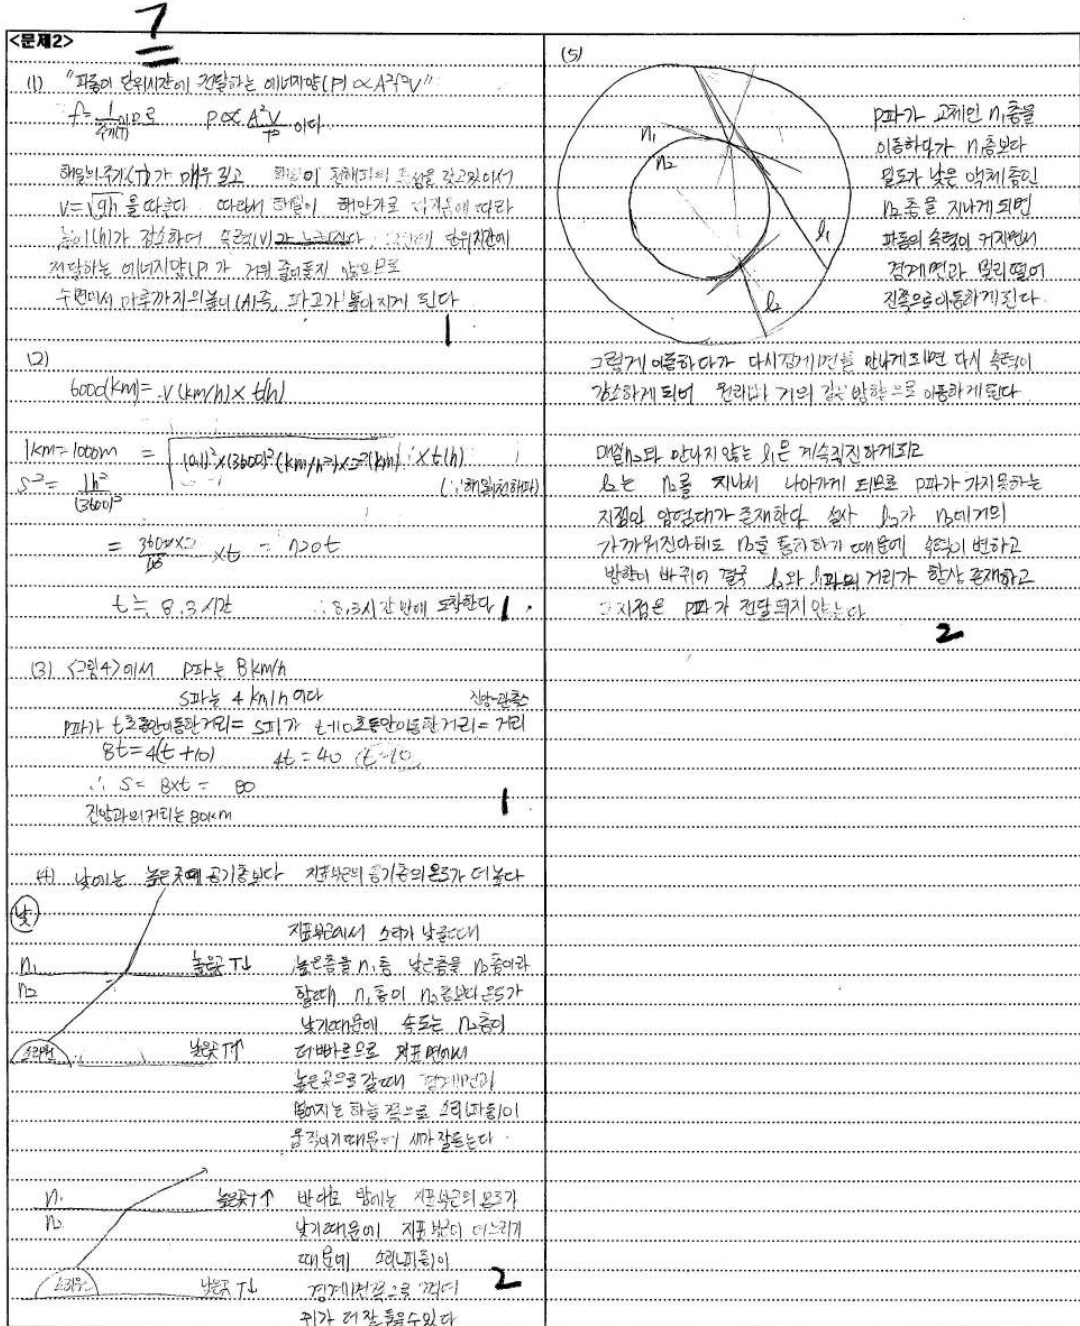 7
<문제2>
(1) "파동이 단위시간에 전달하는 에너지양(P) ∝ A²f²V"
f = 1/주기(T) 이므로 P ∝ A²V/T² 이다
해일의 주기(T)가 매우 길고 해일이 천해파의 특성을 갖고있어서
V=√gh 을 따른다 따라서 해일이 해안가로 다가옴에 따라
높이(h)가 감소하여 속력(V)가 단위시간에
전달하는 에너지양(P)가 거의 줄어들지 않으므로
수면에서 마루까지의 높이(A)즉, 파고가 높아지게 된다
1
(2)
6000(km)= V(km/h)× t(h)
1km=1000m
S²= 1h²/(3600)²
(∵해일(천해파))
×t = 720t
t≒ 8.3시간 ∴8.3시간 만에 도착한다
1
(3) <그림4>에서 P파는 8km/h
S파는 4km/h 이다
P파가 t초동안이동한거리= S파가 t+10초동안이동한거리= 진앙-관측소 거리
8t=4(t+10) 4t=40 (t=10)
∴ S= 8×t = 80
진앙과의거리는 80km
1
(4) 낮에는 높은곳의 공기층보다 지표부근의 공기층의 온도가 더 높다
낮
지표부근에서 소리가 났을때
n₁ 높은곳 T↓ 높은층을 n₁층 낮은층을 n₂층이라
n₂ 할때 n₁층이 n₂층보다 온도가
낮기때문에 속도는 n₂층이
소리원 낮은곳 T↑ 더빠르므로 지표면에서
높은곳으로 갈때 경계면과
멀어지는 하늘 쪽으로 소리(파동)이
움직이기때문에 새가 잘듣는다
n₁ 높은곳T↑ 반대로 밤에는 지표부근의 온도가
n₂ 낮기때문에 지표부근이 더느리기
때문에 소리(파동)이
소리원 낮은곳 T↓ 경계면쪽으로 꺾여
쥐가 더 잘 들을수있다
2
(5)
n₁
n₂
l₁
l₂
P파가 고체인 n₁층을
이동하다가 n₁층보다
밀도가 낮은 액체층인
n₂층을 지나게 되면
파동의 속력이 커지면서
경계면과 멀리떨어
진쪽으로이동하게된다.
그렇게 이동하다가 다시경계면을 만나게되면 다시 속력이
감소하게 되어 원래와 거의 같은 방향으로 이동하게 된다
n₂와 만나지 않는 l₁은 계속직진하게되고
l₂는 n₂를 지나서 나아가게 되므로 P파가 가지못하는
지점인 암영대가 존재한다. 설사 l₂가 n₂에거의
가까워진다해도 n₂을 통과하기 때문에 속력이 변하고
방향이 바뀌어 결국 l₂와 l₁과의 거리가 항상 존재하고
그지점은 P파가 전달되지 않는다
2